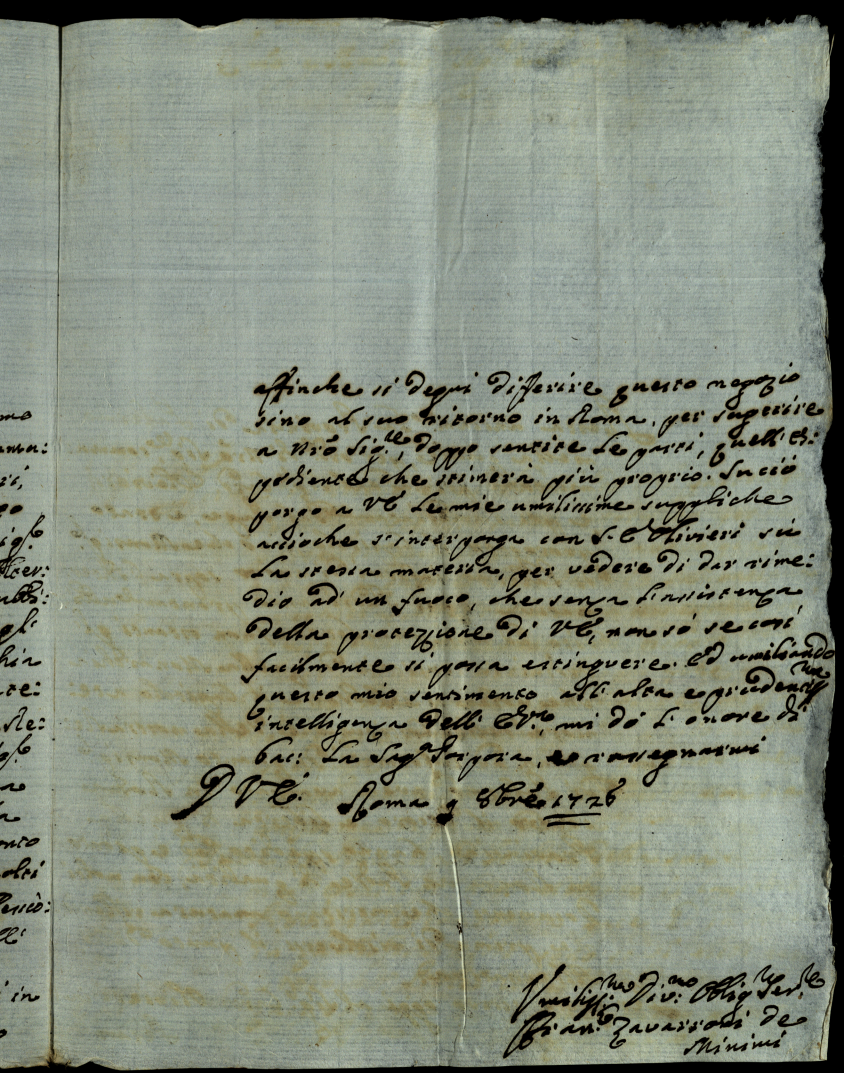 affinche si degni differire questo negozio
sino al suo ritorno in Roma, per sugerire
a Nrõ Sig.re, doppo sentite le parti, quell' es:
pediente che stimerà più proprio. Su ciò
porgo a VE le mie umilissime suppliche
accioche s'interponga con S. E Olivieri sù
la stessa materia, per vedere di dar rime:
dio ad un fuoco, che senza l'assistenza
della protezzione di VE, non sò se così
facilmente si possa estinguere. Ed umiliando
questo mio sentimento all' alta e prudentiss.ma
intelligenza dell' E.V., mi dò l' onore di
bac: la Sag.ra Porpora, e rassegnarmi
D VE. Roma 9 8bre 1726
Umiliss.mo Div.mo Obblig.mo Ser.re
Fran.co Zavarroni de
Minimi
mo
ri,
go
hia
te:
a
la
nto
olti
i in